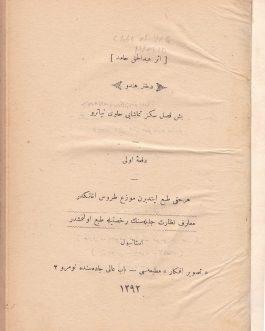 [ اثر عبدالحق حامد ]
دختر هندو
بش فصل سكز تماشايى حاوى تياترو
دفعۀ اولى
هر حقى طبع ايتديرن موزع طروس افنديكدر
معارف نظارت جليله‌سنك رخصتيله طبع اولنمشدر
استانبول
« تصوير افكار » مطبعه‌سى — باب عالى جاده‌سنده نومرو ٢
١٢٩٢